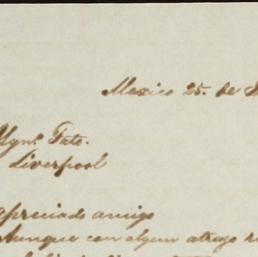 Mexico 25. de
Ygn.º Fato.
Liverpool
apreciado amigo
Aunque con algun atrazo